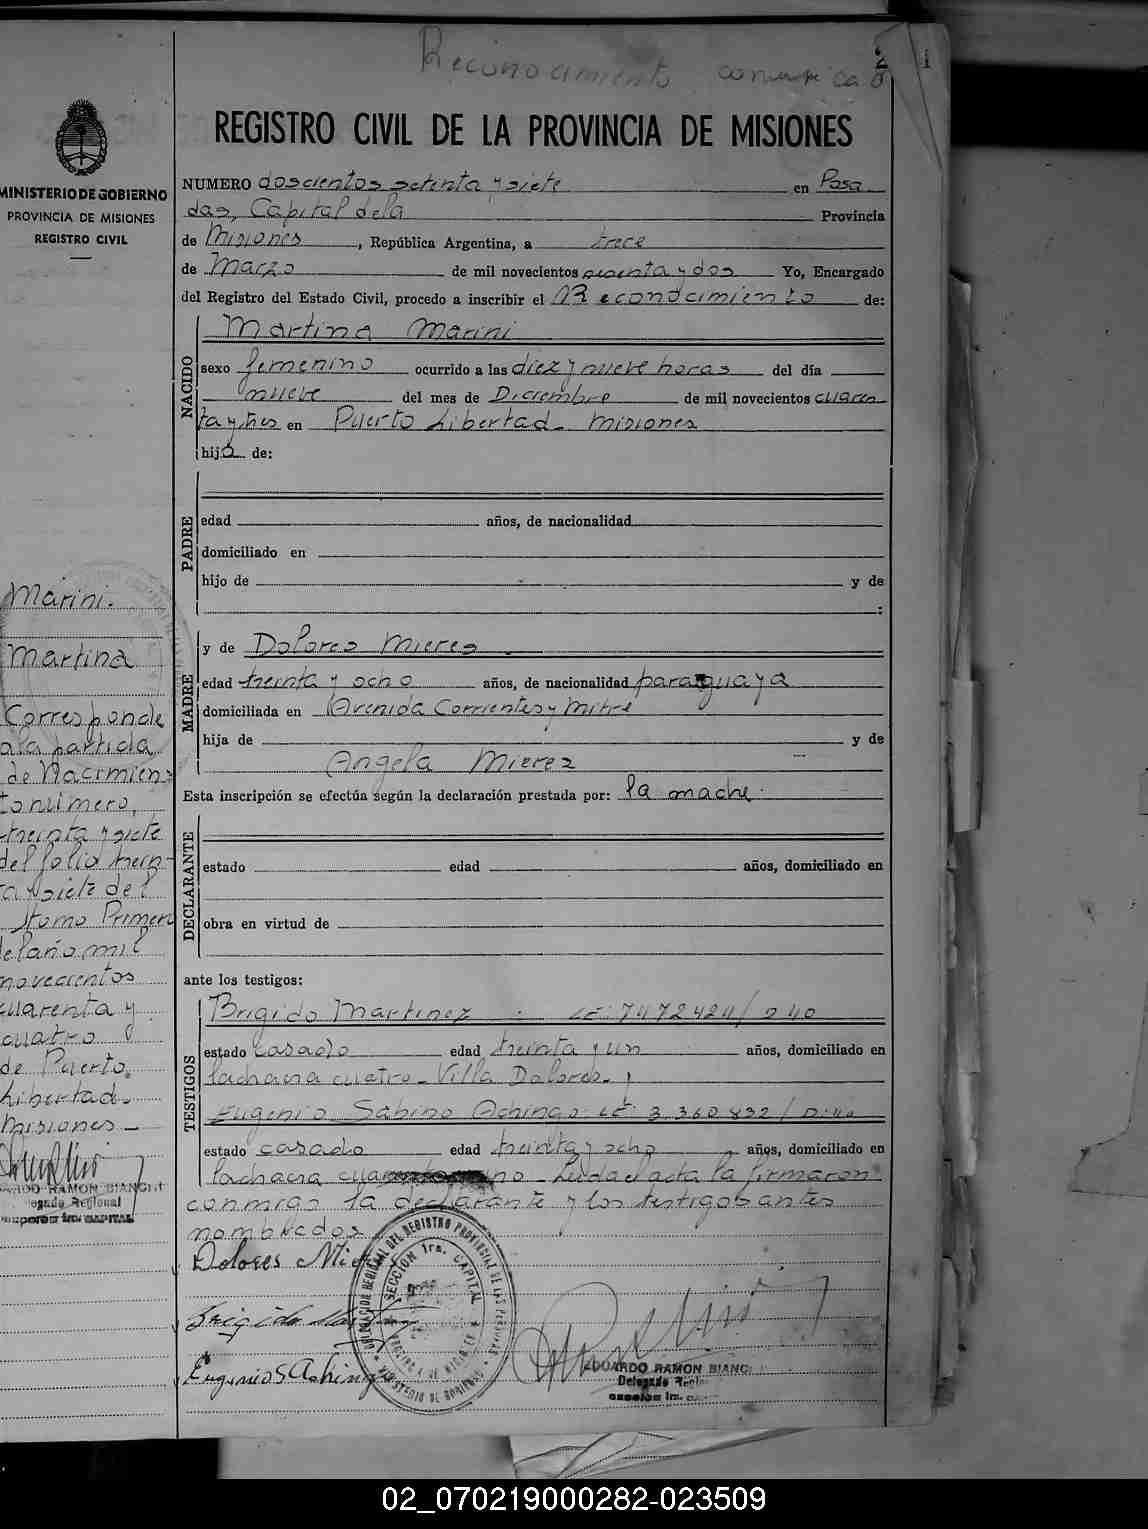 Reconocimiento
REGISTRO CIVIL DE LA PROVINCIA DE MISIONES
MINISTERIO DE GOBIERNO
PROVINCIA DE MISIONES
REGISTRO CIVIL
NUMERO doscientos setenta y siete en Posa
das, Capital de la Provincia
de Misiones, República Argentina, a trece
de Marzo de mil novecientos sesenta y dos Yo, Encargado
del Registro del Estado Civil, procedo a inscribir el Reconocimiento de:
NACIDO
Martina Marini
sexo femenino ocurrido a las diez y nueve horas del día
nueve del mes de Diciembre de mil novecientos cuaren
ta y tres en Puerto Libertad - Misiones
hija de:
PADRE
edad años, de nacionalidad
domiciliado en
hijo de y de
:
MADRE
y de Dolores Mieres
edad treinta y ocho años, de nacionalidad paraguaya
domiciliada en Avenida Corrientes y Mitre
hija de y de
Angela Mieres
Esta inscripción se efectúa según la declaración prestada por: la madre.
DECLARANTE
estado edad años, domiciliado en
obra en virtud de
ante los testigos:
TESTIGOS
Brigido Martinez
estado casado edad treinta y un años, domiciliado en
la chacra cuatro - Villa Dolores - y
Eugenio Sabino Achinga
estado casado edad treinta y ocho años, domiciliado en
la chacra no - Leida el acta la firmaron
conmigo la declarante y los testigos antes
nombrados
Dolores
Brigido
Eugenio S Aching
DELEGACION REGIONAL DEL REGISTRO PROVINCIAL DE LAS PERSONAS
SECCION 1ra. CAPITAL
MINISTERIO DE GOBIERNO
EDUARDO RAMON BIANCHI
Delegado
Marini.
Martina
Corresponde
a la partida
de Nacimien
to número,
treinta y siete
del folio trein-
ta y siete del
tomo Primero
del año mil
novecientos
cuarenta y
cuatro
de Puerto
Libertad -
Misiones -
ARDO RAMON BIANCHI
legado Regional
CAPITAL
02_070219000282-023509